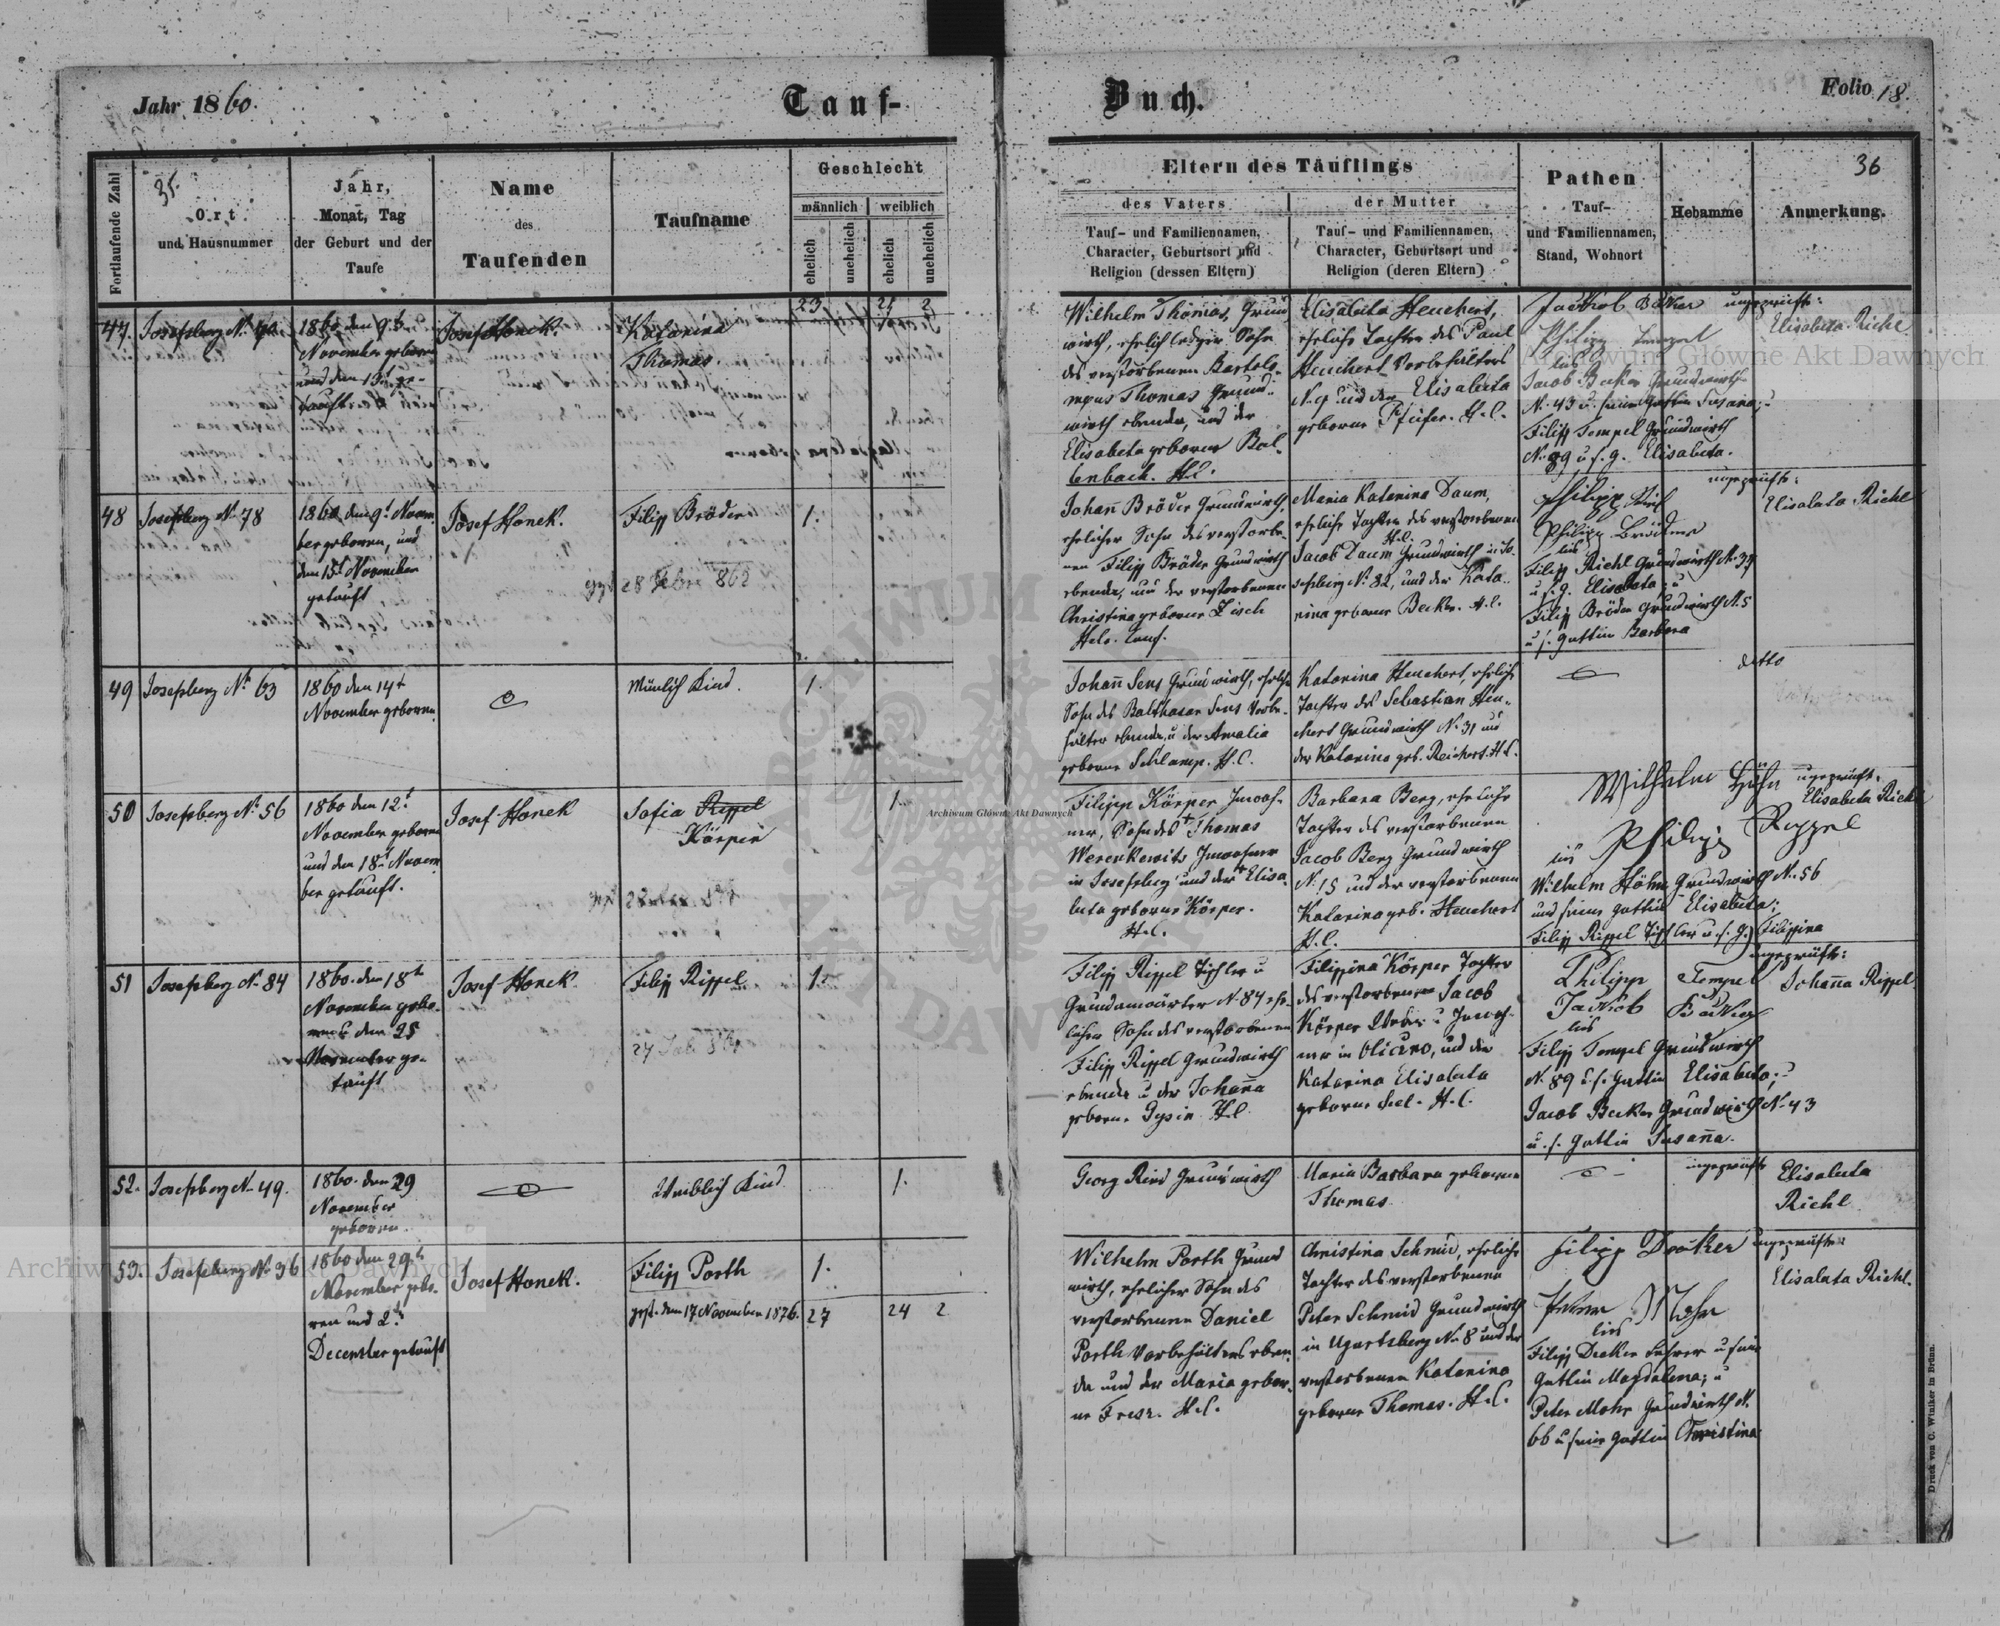 Jahr 1860.
Tauf-
Buch.
Folio 18.
Fortlaufende Zahl
35.
Ort
und Hausnummer
Jahr,
Monat, Tag
der Geburt und der
Taufe
Name
des
Taufenden
Taufname
Geschlecht
männlich
weiblich
ehelich
unehelich
ehelich
unehelich
Eltern des Täuflings
des Vaters
Tauf- und Familiennamen,
Character, Geburtsort und
Religion (dessen Eltern)
der Mutter
Tauf- und Familiennamen,
Character, Geburtsort und
Religion (deren Eltern)
Pathen
Tauf-
und Familiennamen,
Stand, Wohnort
Hebamme
36
Anmerkung.
23 21 2
47. Josefsberg N.
1860 den 9t
November geboren
und den 13t ge-
tauft
Josef Honek.
Katarina
Thomas.
Wilhelm Thomas, Grund
wirth, ehelich lediger Sohn
des verstorbenen Bartolo-
meus Thomas Grund-
wirth ebenda, und der
Elisabeta geborene Bal-
lenbach. H.C.
Elisabeta Heuchert,
eheliche Tochter des Paul
Heuchert Vorbehälters
N. 9 und der Elisabeta
geborne Pfeifer. H.C.
Jackob Bäcker
Philipp Tempel
bis
Jacob Becker Grundwirth
N. 43 u. seine Gattin Susana; u
Filipp Tempel Grundwirth
N. 89 u. s. g. Elisabeta.
ungeprüfte:
Elisabeta Richl
48 Josefsberg N. 78
1860 den 9t Novem-
ber geboren, und
den 15t November
getauft
Josef Honek.
Filipp Bröder
28 Febr 862
1.
Johann Bröder Grundwirth,
ehelicher Sohn des verstorbe-
nen Filipp Bröder Grundwirth
ebenda, und der verstorbenen
Christina geborne Zisch
Helv. Conf.
Maria Katarina Daum,
eheliche Tochter des verstorbenen
H.C.
Jacob Daum Grundwirth in Jo-
sefsberg N. 82, und der Kata-
rina geborne Becker. H.C.
Philipp Riel
Philipp Bröder
bis
Filipp Richl Grundwirth N. 39
u. s. g. Elisabeta; u
Filipp Bröder Grundwirth N. 5
u. s. Gattin Barbara
ungeprüfte:
Elisabeta Richl
49 Josefsberg N. 63
1860 den 14t
November geboren.
Mänlich Kind.
1.
Johann Sens Grundwirth, ehelich
Sohn des Balthasar Sens Vorbe-
hälter ebenda, u der Amalia
geborne Schlamp. H.C.
Katarina Heuchert, ehelich
Tochter des Sebastian Heu-
chert Grundwirth N. 31 und
der Katarina geb. Reichert. H.C.
detto
50 Josefsberg N. 56
1860 den 12t
November geboren
und den 18t Novem-
ber getauft.
Josef Honek
Sofia Rippel
Körper
1.
Filipp Körper Inwoh-
ner, Sohn des Thomas
Werenkewits Inwohner
in Josefsberg und der Elisa-
beta geborne Körper.
H.C.
Barbara Berg, eheliche
Tochter des verstorbenen
Jacob Berg Grundwirth
N. 15 und der verstorbenen
Katarina geb. Heuchert
H.C.
Wilhelm Höhn
Philipp Rippel
bis
Wilhelm Höhn Grundwirth N. 56
und seine Gattin Elisabeta;
Filipp Rippel Tischler u. s. g. Filippina
ungeprüft.
Elisabeta Richl
51 Josefsberg N. 84
1860. den 18t
November gebo-
ren u den 25
November ge-
tauft
Josef Honek.
Filipp Rippel
1.
Filipp Rippel Tischler u
Grundanwärter N. 84 ehe-
licher Sohn des verstorbenen
Filipp Rippel Grundwirth
ebenda u der Johanna
geborne Gysin H.C.
Filippina Körper Tochter
des verstorbenen Jacob
Körper Weber u Inwoh-
ner in Olicino, und der
Katarina Elisabeta
geborne Seel. H.C.
Philipp Tempel
Jackob Bäcker
bis
Filipp Tempel Grundwirth
N. 89 u. s. Gattin Elisabeta; u
Jacob Becker Grundwirth N. 43
u. s. Gattin Susanna.
ungeprüfte:
Johanna Rippel
52. Josefsberg N. 49.
1860. den 29
November
geboren
Weiblich Kind
1.
Georg Ried Grundwirth
Maria Barbara geborene
Thomas
ungeprüfte
Elisabeta
Richl
53. Josefsberg N. 36
1860 den 29t
November gebo-
ren und 2t
December getauft
Josef Honek.
Filipp Porth
gest. den 17 November 1876.
1.
27 24 2
Wilhelm Porth Grund
wirth, ehelicher Sohn des
verstorbenen Daniel
Porth Vorbehälters eben-
da und der Maria gebor-
ne Fresz. H.C.
Christina Schmid, eheliche
Tochter des verstorbenen
Peter Schmid Grundwirth
in Ugartsberg N. 8 und der
verstorbenen Katarina
geborne Thomas. H.C.
Filipp Decker
Peter Mohr
bis
Filipp Decker Lehrer u seine
Gattin Magdalena; u
Peter Mohr Grundwirth N.
66 u seine Gattin Christina
ungeprüfte
Elisabeta Richl.
Druck von C. Winiker in Brünn.
Archiwum Główne Akt Dawnych
Archiwum Główne Akt Dawnych
Archiwum Główne Akt Dawnych